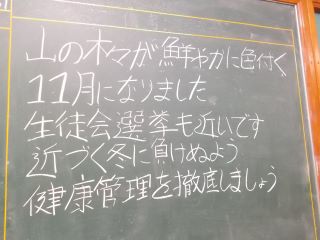 山の木々が鮮やかに色付く
11月になりました
生徒会選挙も近いです
近づく冬に負けぬよう
健康管理を徹底しましょう